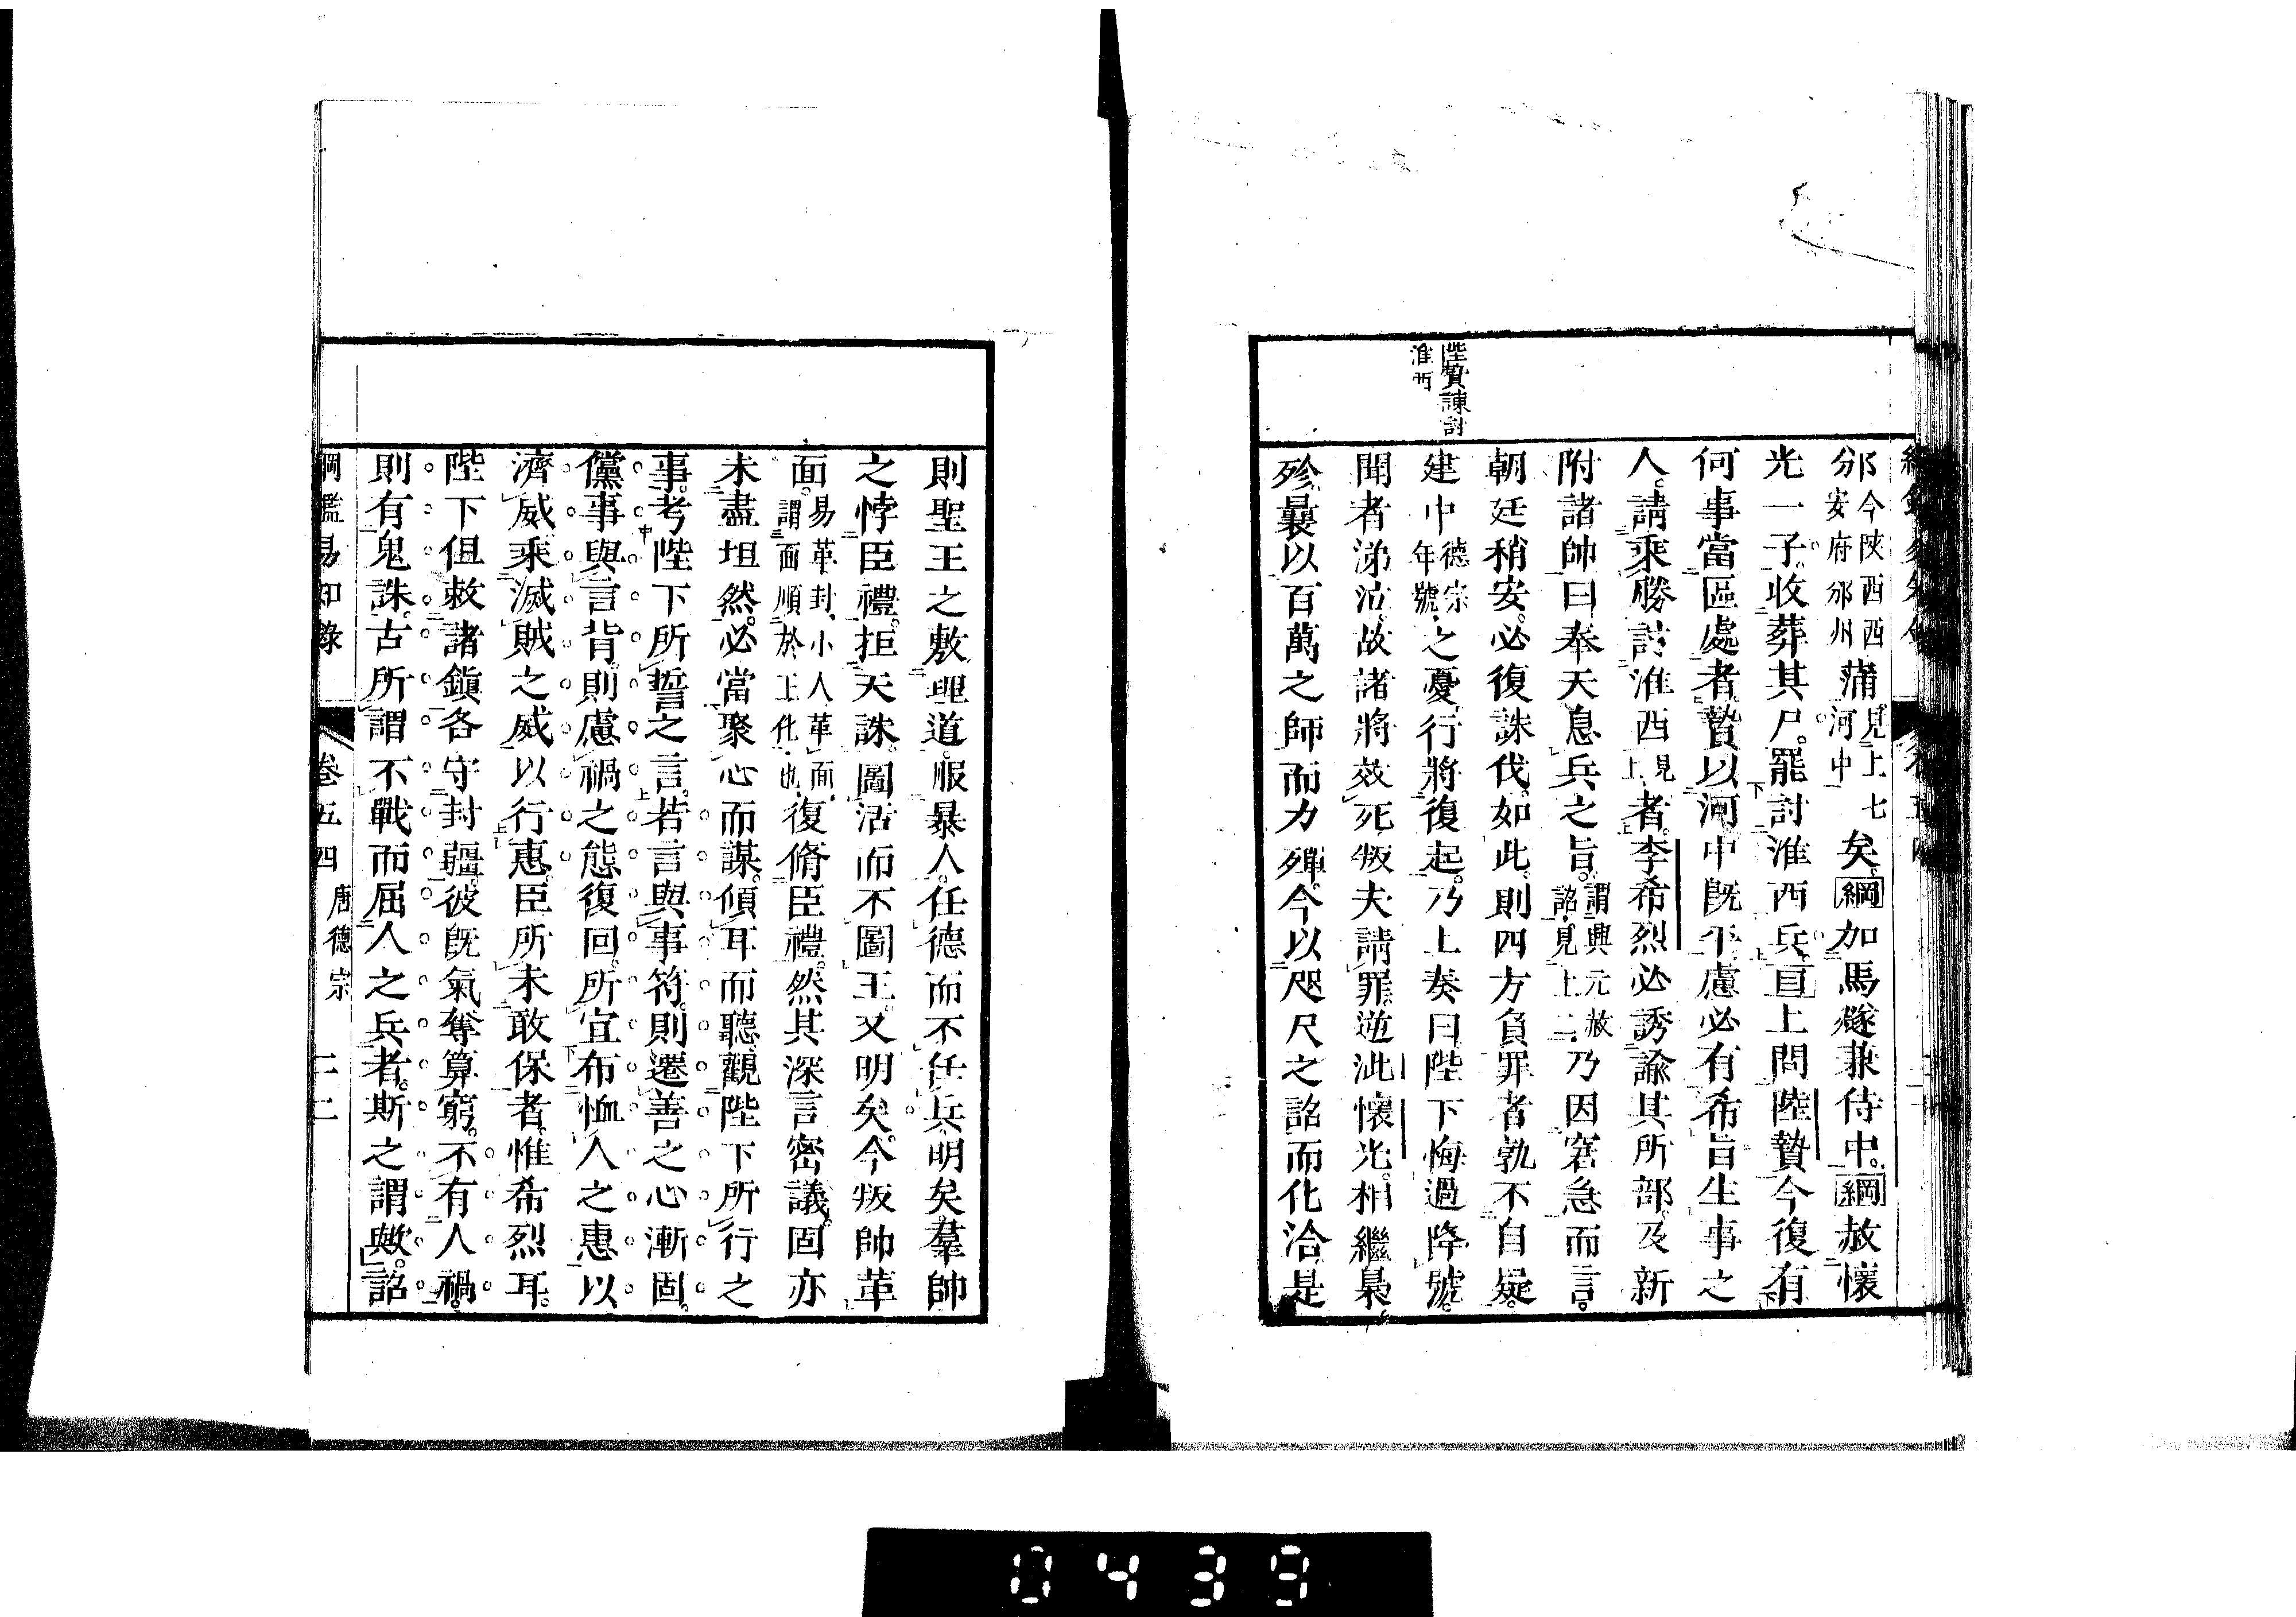 陸贄諫討
淮西
邠今陝西西安府邠州蒲見上七河中矣。綱加馬燧兼侍中。綱赦懷
光一子。收葬其尸。罷討淮西兵。目上問陸贄今復有
何事當區處者。贄以河中既平慮必有希旨生事之
人。請乘勝討淮西見上者。李希烈必誘諭其所部。及新
附諸帥曰奉天息兵之旨。謂興元赦詔。見上二乃因窘急而言。
朝廷稍安。必復誅伐。如此則四方負罪者孰不自疑。
建中德宗年號之憂行將復起。乃上奏曰陛下悔過降號。
聞者涕泣。故諸將效死。叛夫請罪。逆泚懷光。相繼梟
殄。曩以百萬之師而力殫。今以咫尺之詔而化洽。是
則聖王之敷理道。服暴人。任德而不任兵。明矣。羣帥
之悖臣禮。拒天誅。圖活而不圖王。又明矣。今叛帥革
面。易革封。小人革面。謂面順於上化也。復脩臣禮。然其深言密議。固亦
未盡坦然。必當聚心而謀。傾耳而聽。觀陛下所行之
事。考陛下所誓之言。若言與事符。則遷善之心漸固。
儻事與言背。則慮禍之態復回。所宜布恤人之惠以
濟威。乘滅賊之威以行惠。臣所未敢保者。惟希烈耳。
陛下但敕諸鎭各守封疆。彼既氣奪算窮。不有人禍。
則有鬼誅。古所謂不戰而屈人之兵者。斯之謂歟。詔
綱鑑易知錄 卷五四 唐德宗 二二
0439